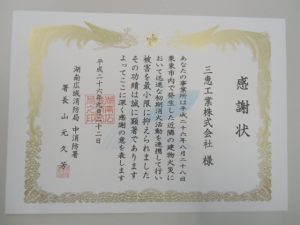 感謝状
三恵工業株式会社 様
あなたの事業所は平成二十六年八月二十八日
栗東市内で発生した近隣の建物火災に
おいて迅速な初期消火活動を連携して行い
被害を最小限に抑えられました
その功績は誠に顕著であります
よってここに深く感謝の意を表します
平成二十六年九月二十二日
湖南広域消防局 中消防署
署長 山元久芳